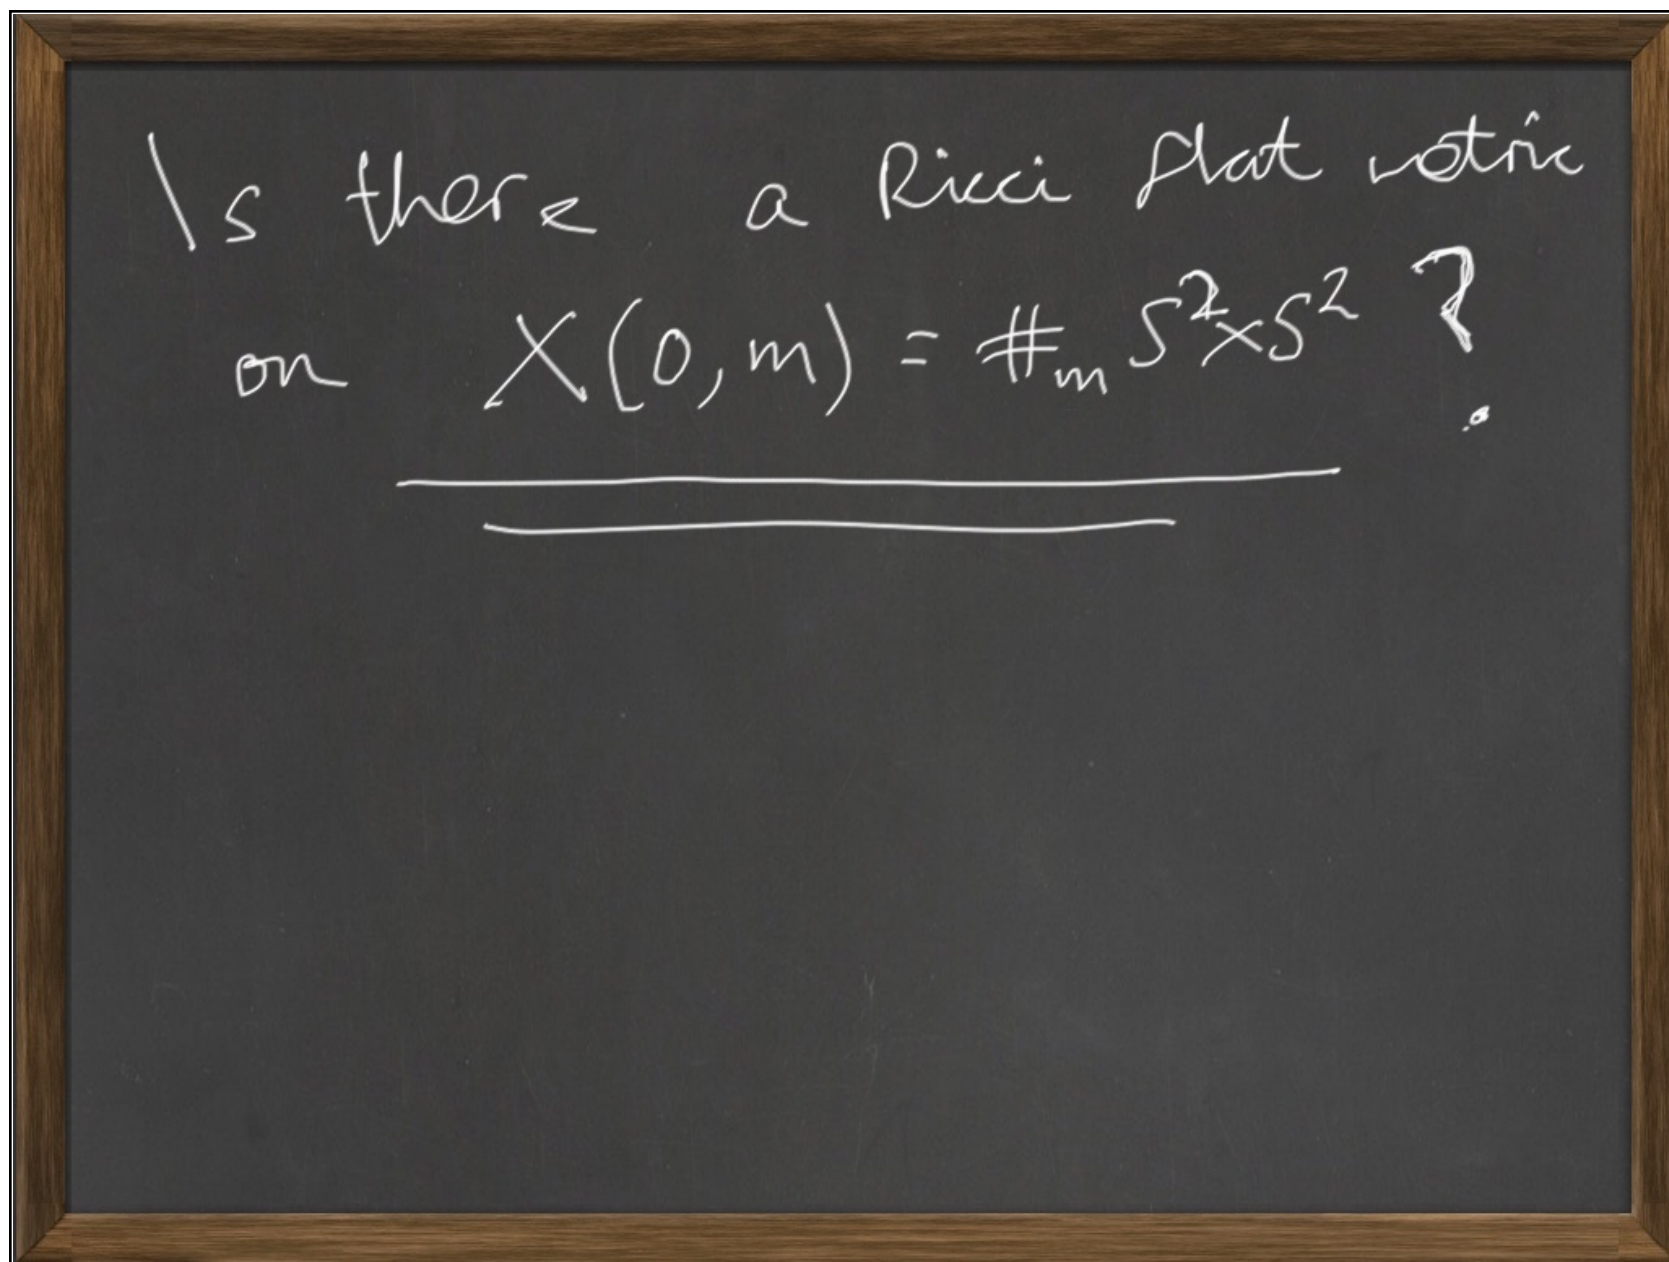 Is there a Ricci flat metric
on X(0,m) = #ₘ S²×S² ?